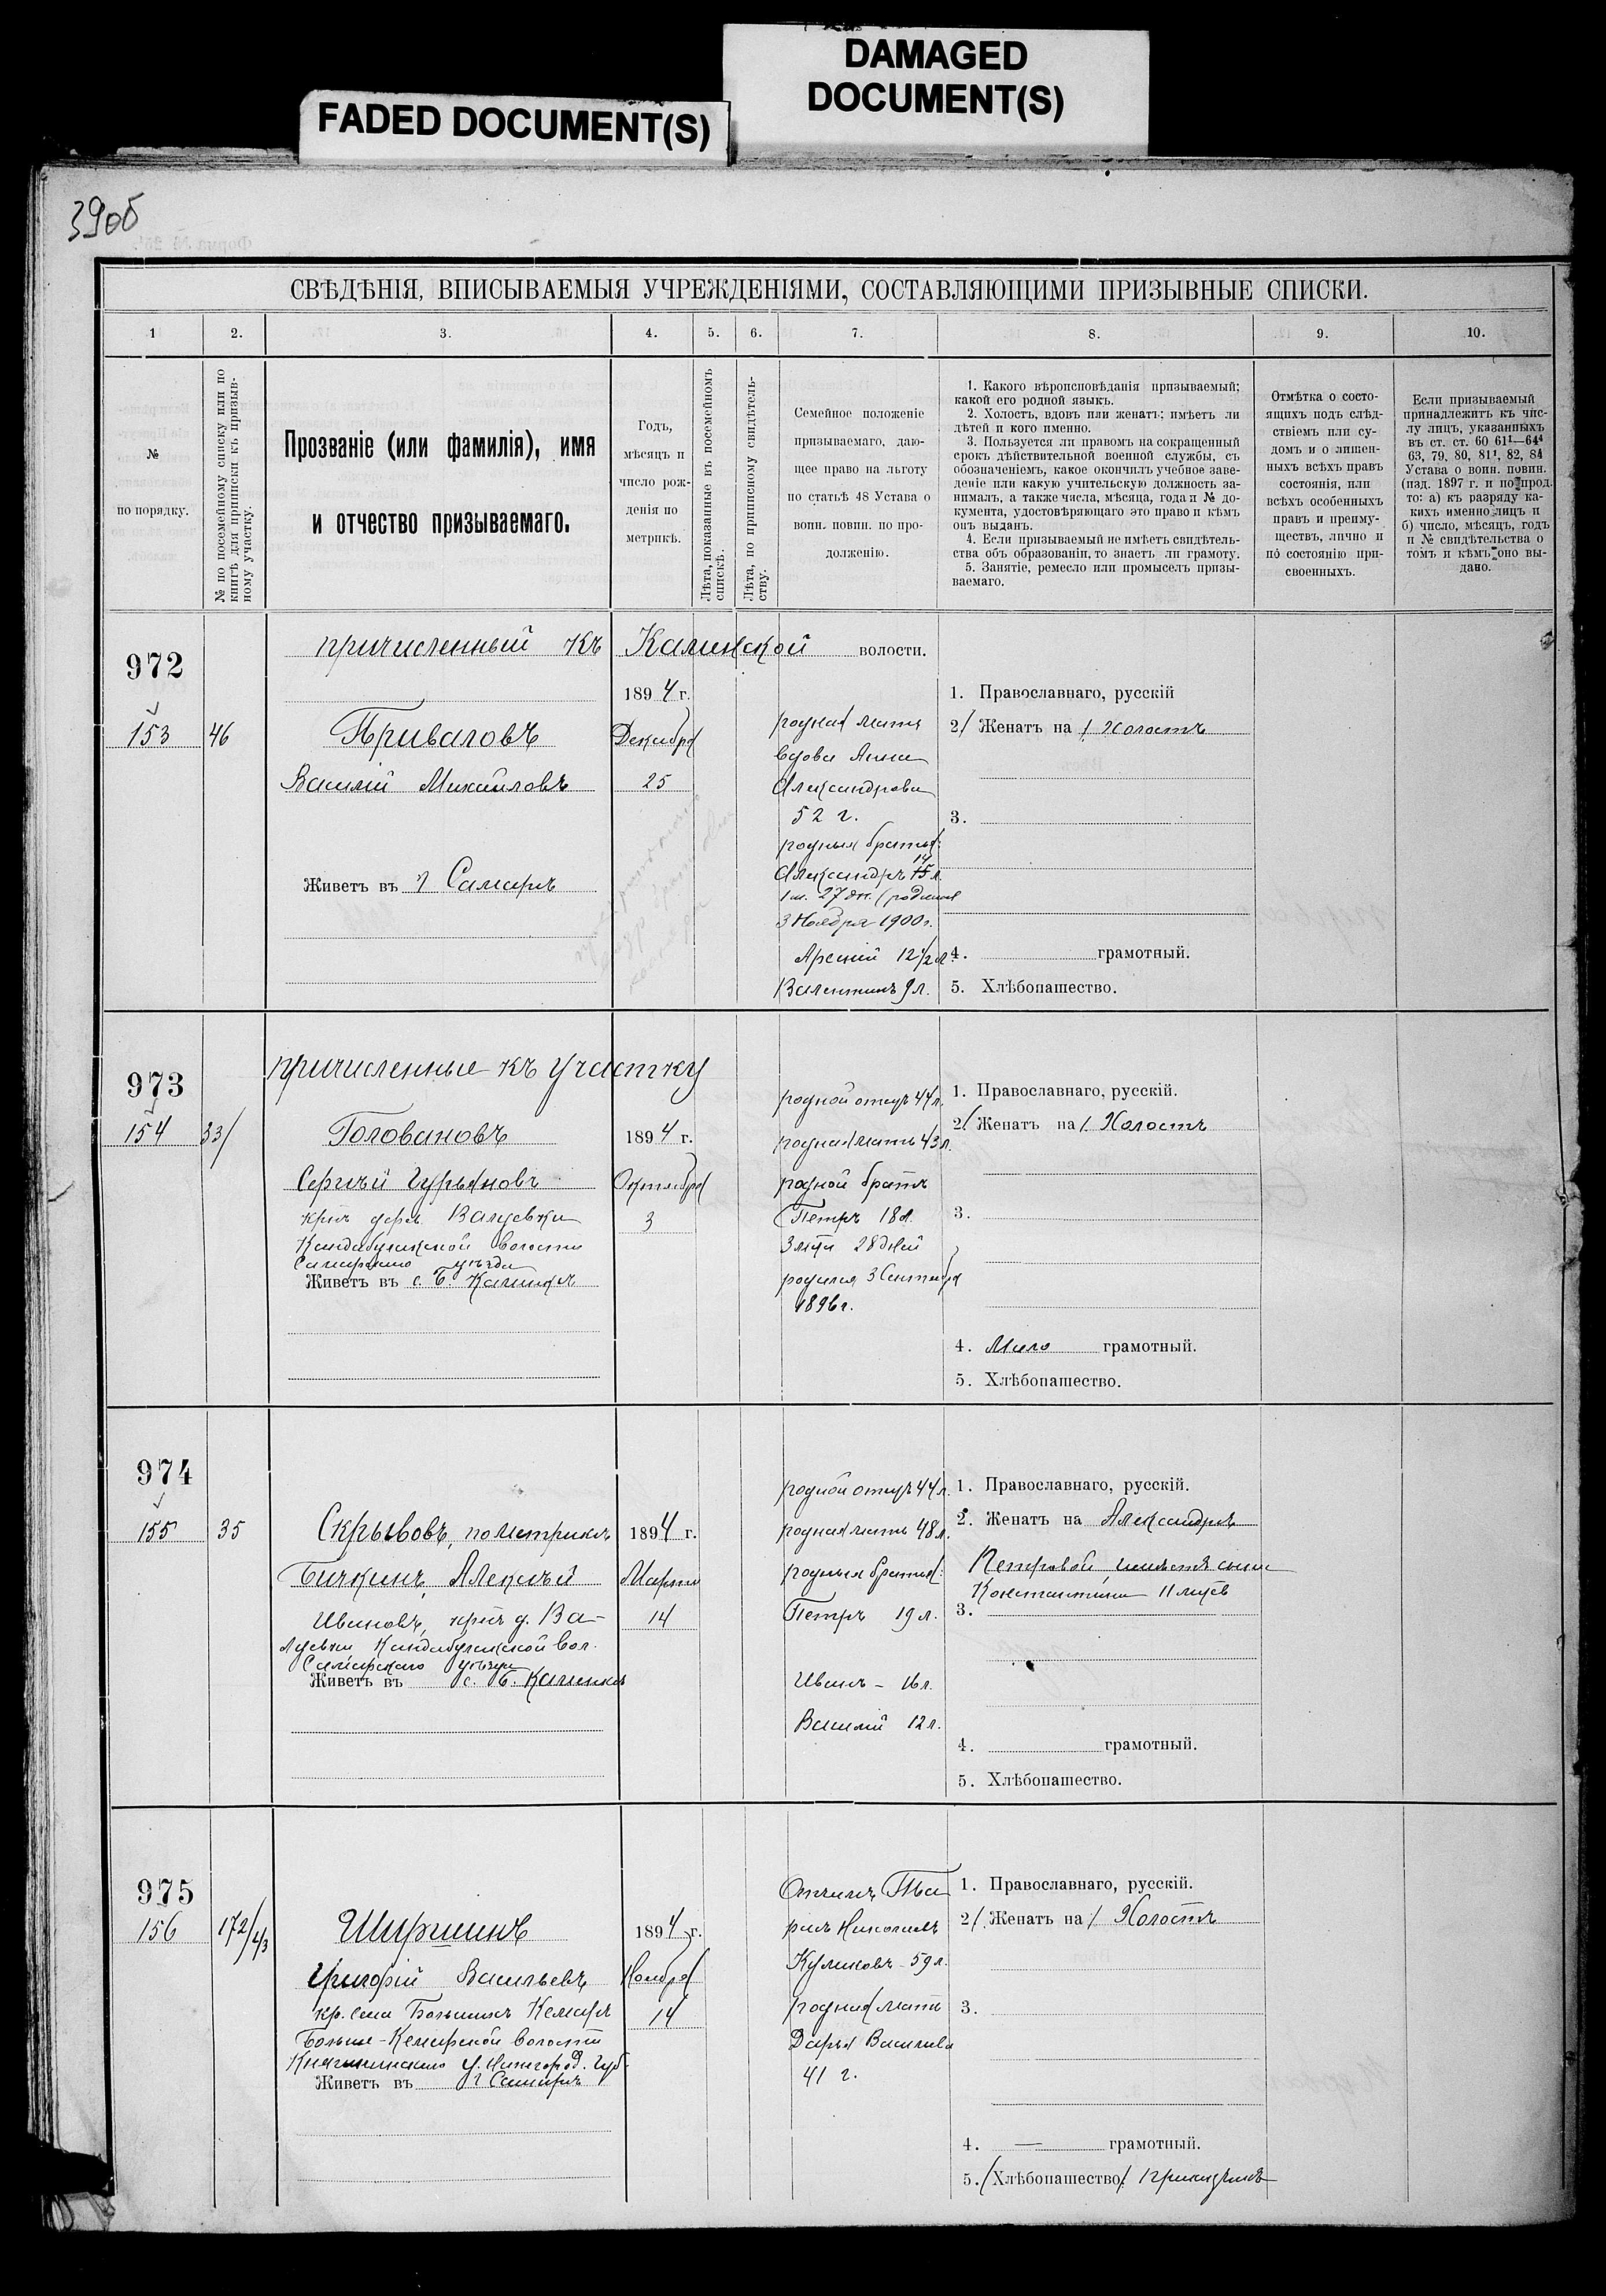 DAMAGED
DOCUMENT(S)
FADED DOCUMENT(S)
39об
СВѢДѢНІЯ, ВПИСЫВАЕМЫЯ УЧРЕЖДЕНІЯМИ, СОСТАВЛЯЮЩИМИ ПРИЗЫВНЫЕ СПИСКИ.
1 2. 3. 4. 5. 6. 7. 8. 9. 10.
№
по порядку.
№ по посемейному списку или по
книгѣ для приписки къ призыв-
ному участку.
Прозваніе (или фамилія), имя
и отчество призываемаго.
Годъ,
мѣсяцъ и
число рож-
денія по
метрикѣ.
Лѣта, показанные въ посемейномъ
спискѣ.
Лѣта, по приписному свидѣтель-
ству.
Семейное положеніе
призываемаго, даю-
щее право на льготу
по статьѣ 48 Устава о
воин. повин. по про-
долженію.
1. Какого вѣроисповѣданія призываемый;
какой его родной языкъ.
2. Холостъ, вдовъ или женатъ; имѣетъ ли
дѣтей и кого именно.
3. Пользуется ли правомъ на сокращенный
срокъ дѣйствительной военной службы, съ
обозначеніемъ, какое окончилъ учебное заве-
деніе или какую учительскую должность за-
нималъ, а также числа, мѣсяца, года и № до-
кумента, удостовѣряющаго это право и кѣмъ
онъ выданъ.
4. Если призываемый не имѣетъ свидѣтель-
ства объ образованіи, то знаетъ ли грамоту.
5. Занятіе, ремесло или промыселъ призы-
ваемаго.
Отмѣтка о состо-
ящихъ подъ слѣд-
ствіемъ или су-
домъ и о лишен-
ныхъ всѣхъ правъ
состоянія, или
всѣхъ особенныхъ
правъ и преиму-
ществъ, лично и
по состоянію при-
своенныхъ.
Если призываемый
принадлежитъ къ чис-
лу лицъ, указанныхъ
въ ст. ст. 60 61¹—64⁴
63, 79, 80, 81¹, 82, 84
Устава о воин. повин.
(изд. 1897 г. и по прод.
то: а) къ разряду ка-
кихъ именно лицъ и
б) число, мѣсяцъ, годъ
и № свидѣтельства о
томъ и кѣмъ оно вы-
дано.
972
153 46
причисленный къ Калинской волости.
Приваловъ
Василій Михайловъ
Живетъ въ г Самарѣ
1894 г.
Декабря
25
родная мать
вдова Анна
Александрова
52 г.
родныя братья:
Александръ 15 л. 14
1 м. 27 дн. (родился
3 Ноября 1900 г.
Арсеній 12 1/2 л.
Валентинъ 9 л.
1. Православнаго, русскій
2/ Женатъ на / Холостъ
3.
4. грамотный.
5. Хлѣбопашество.
973
154 33/
причисленные къ участку
Головановъ
Сергѣй Гурьяновъ
крнъ дерев. Валуевки
Кандабулакской волости
Самарскаго уѣзда
Живетъ въ с. Б. Калинкѣ
1894 г.
Октября
3
родной отецъ 44 л.
родная мать 43 л.
родной братъ
Петръ 18 л.
3 мца 28 дней
родился 3 Сентября
1896 г.
1. Православнаго, русскій.
2/ Женатъ на / Холостъ
3.
4. Мало грамотный.
5. Хлѣбопашество.
974
155 35
Скрывовъ, по метрикѣ
Бичкинъ, Алексѣй
Ивановъ, крнъ д. Ва-
луевки Кандабулакской вол.
Самарскаго уѣзда
Живетъ въ с. Б. Калинкѣ
1894 г.
Марта
14
родной отецъ 44 л.
родная мать 48 л.
родныя братья:
Петръ 19 л.
Иванъ - 16 л.
Василій 12 л.
1. Православнаго, русскій.
2. Женатъ на Александрѣ
Петровой, имѣетъ сына
Константина 11 мцев
3.
4. грамотный.
5. Хлѣбопашество.
975
156 172/43
Ширшинъ
Григорій Васильевъ
кр. села Большихъ Кемаръ
Больше-Кемарской волости
Княгининскаго у. Нижегород. губ.
Живетъ въ г Самарѣ
1894 г.
Ноября
14
Отчимъ
Николаевъ
Куликовъ - 59 л.
родная мать
Дарья Василева
41 г.
1. Православнаго, русскій.
2/. Женатъ на / Холостъ
3.
4. — грамотный.
5. /Хлѣбопашество/.